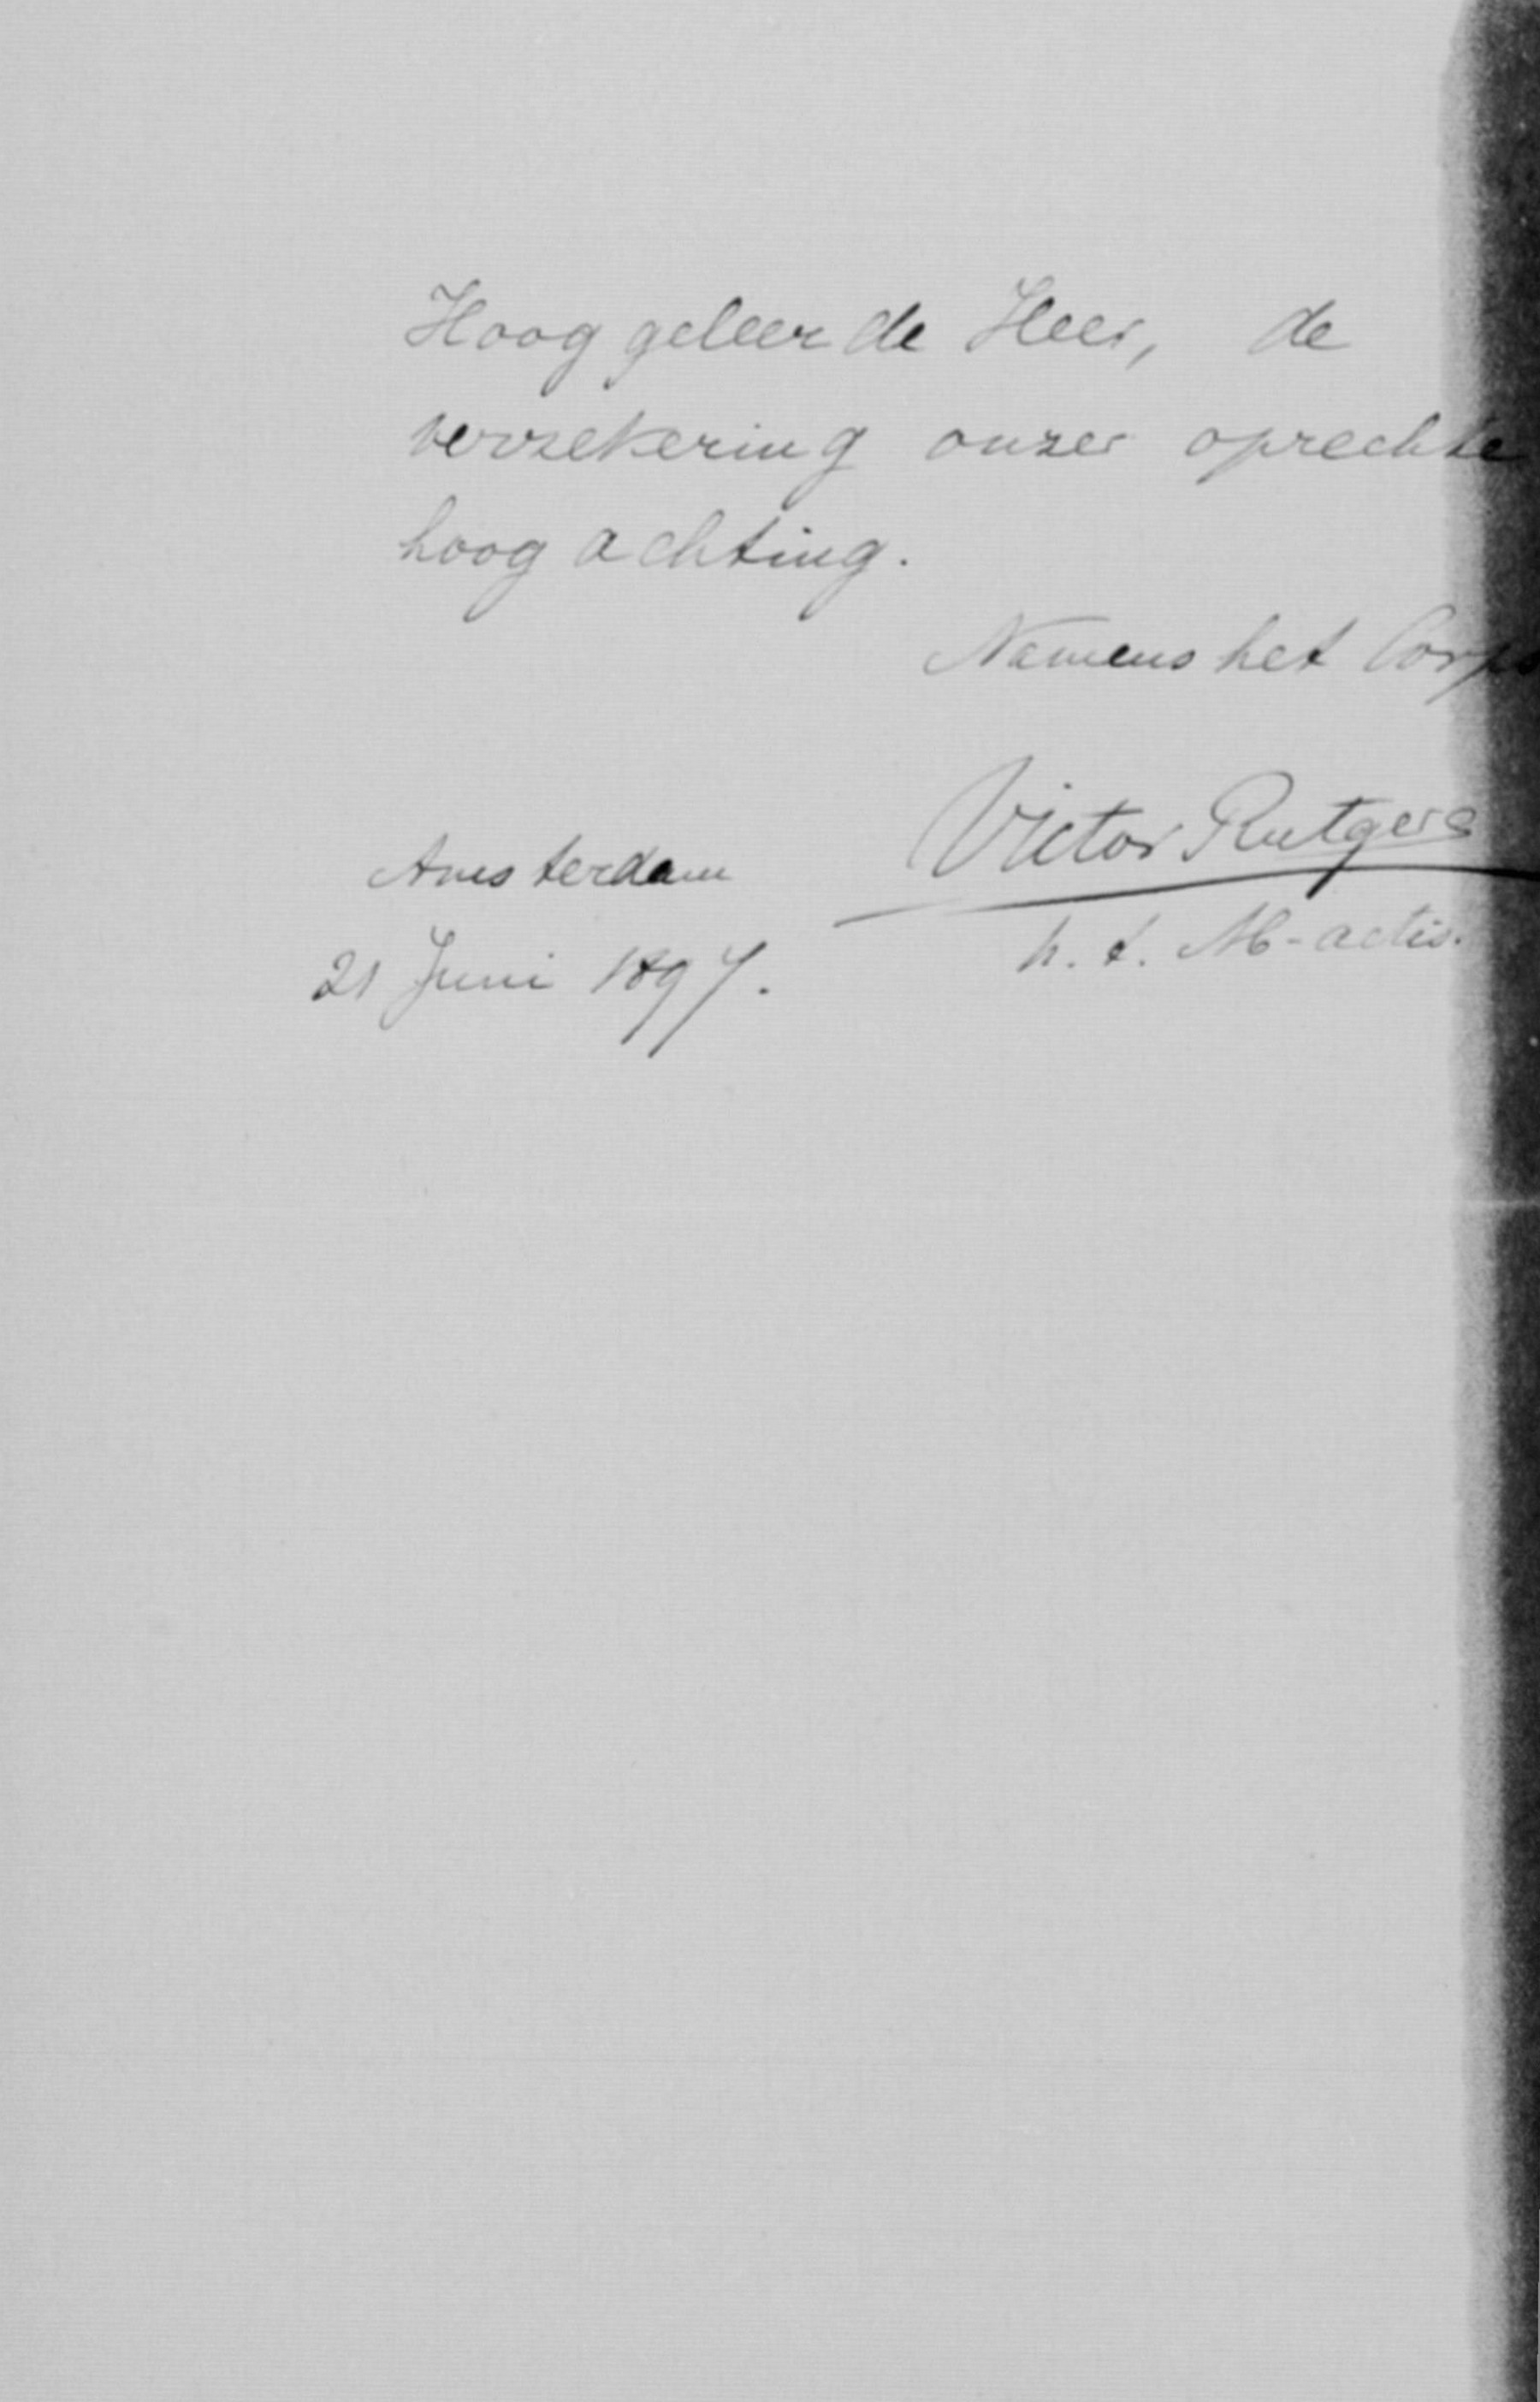 Hooggeleerde Heer, de
verzekering onzer oprechte
hoogachting.
Namens het Corps
Victor Rutgers
h. t. Ab-actis.
Amsterdam
21 Juni 1897.